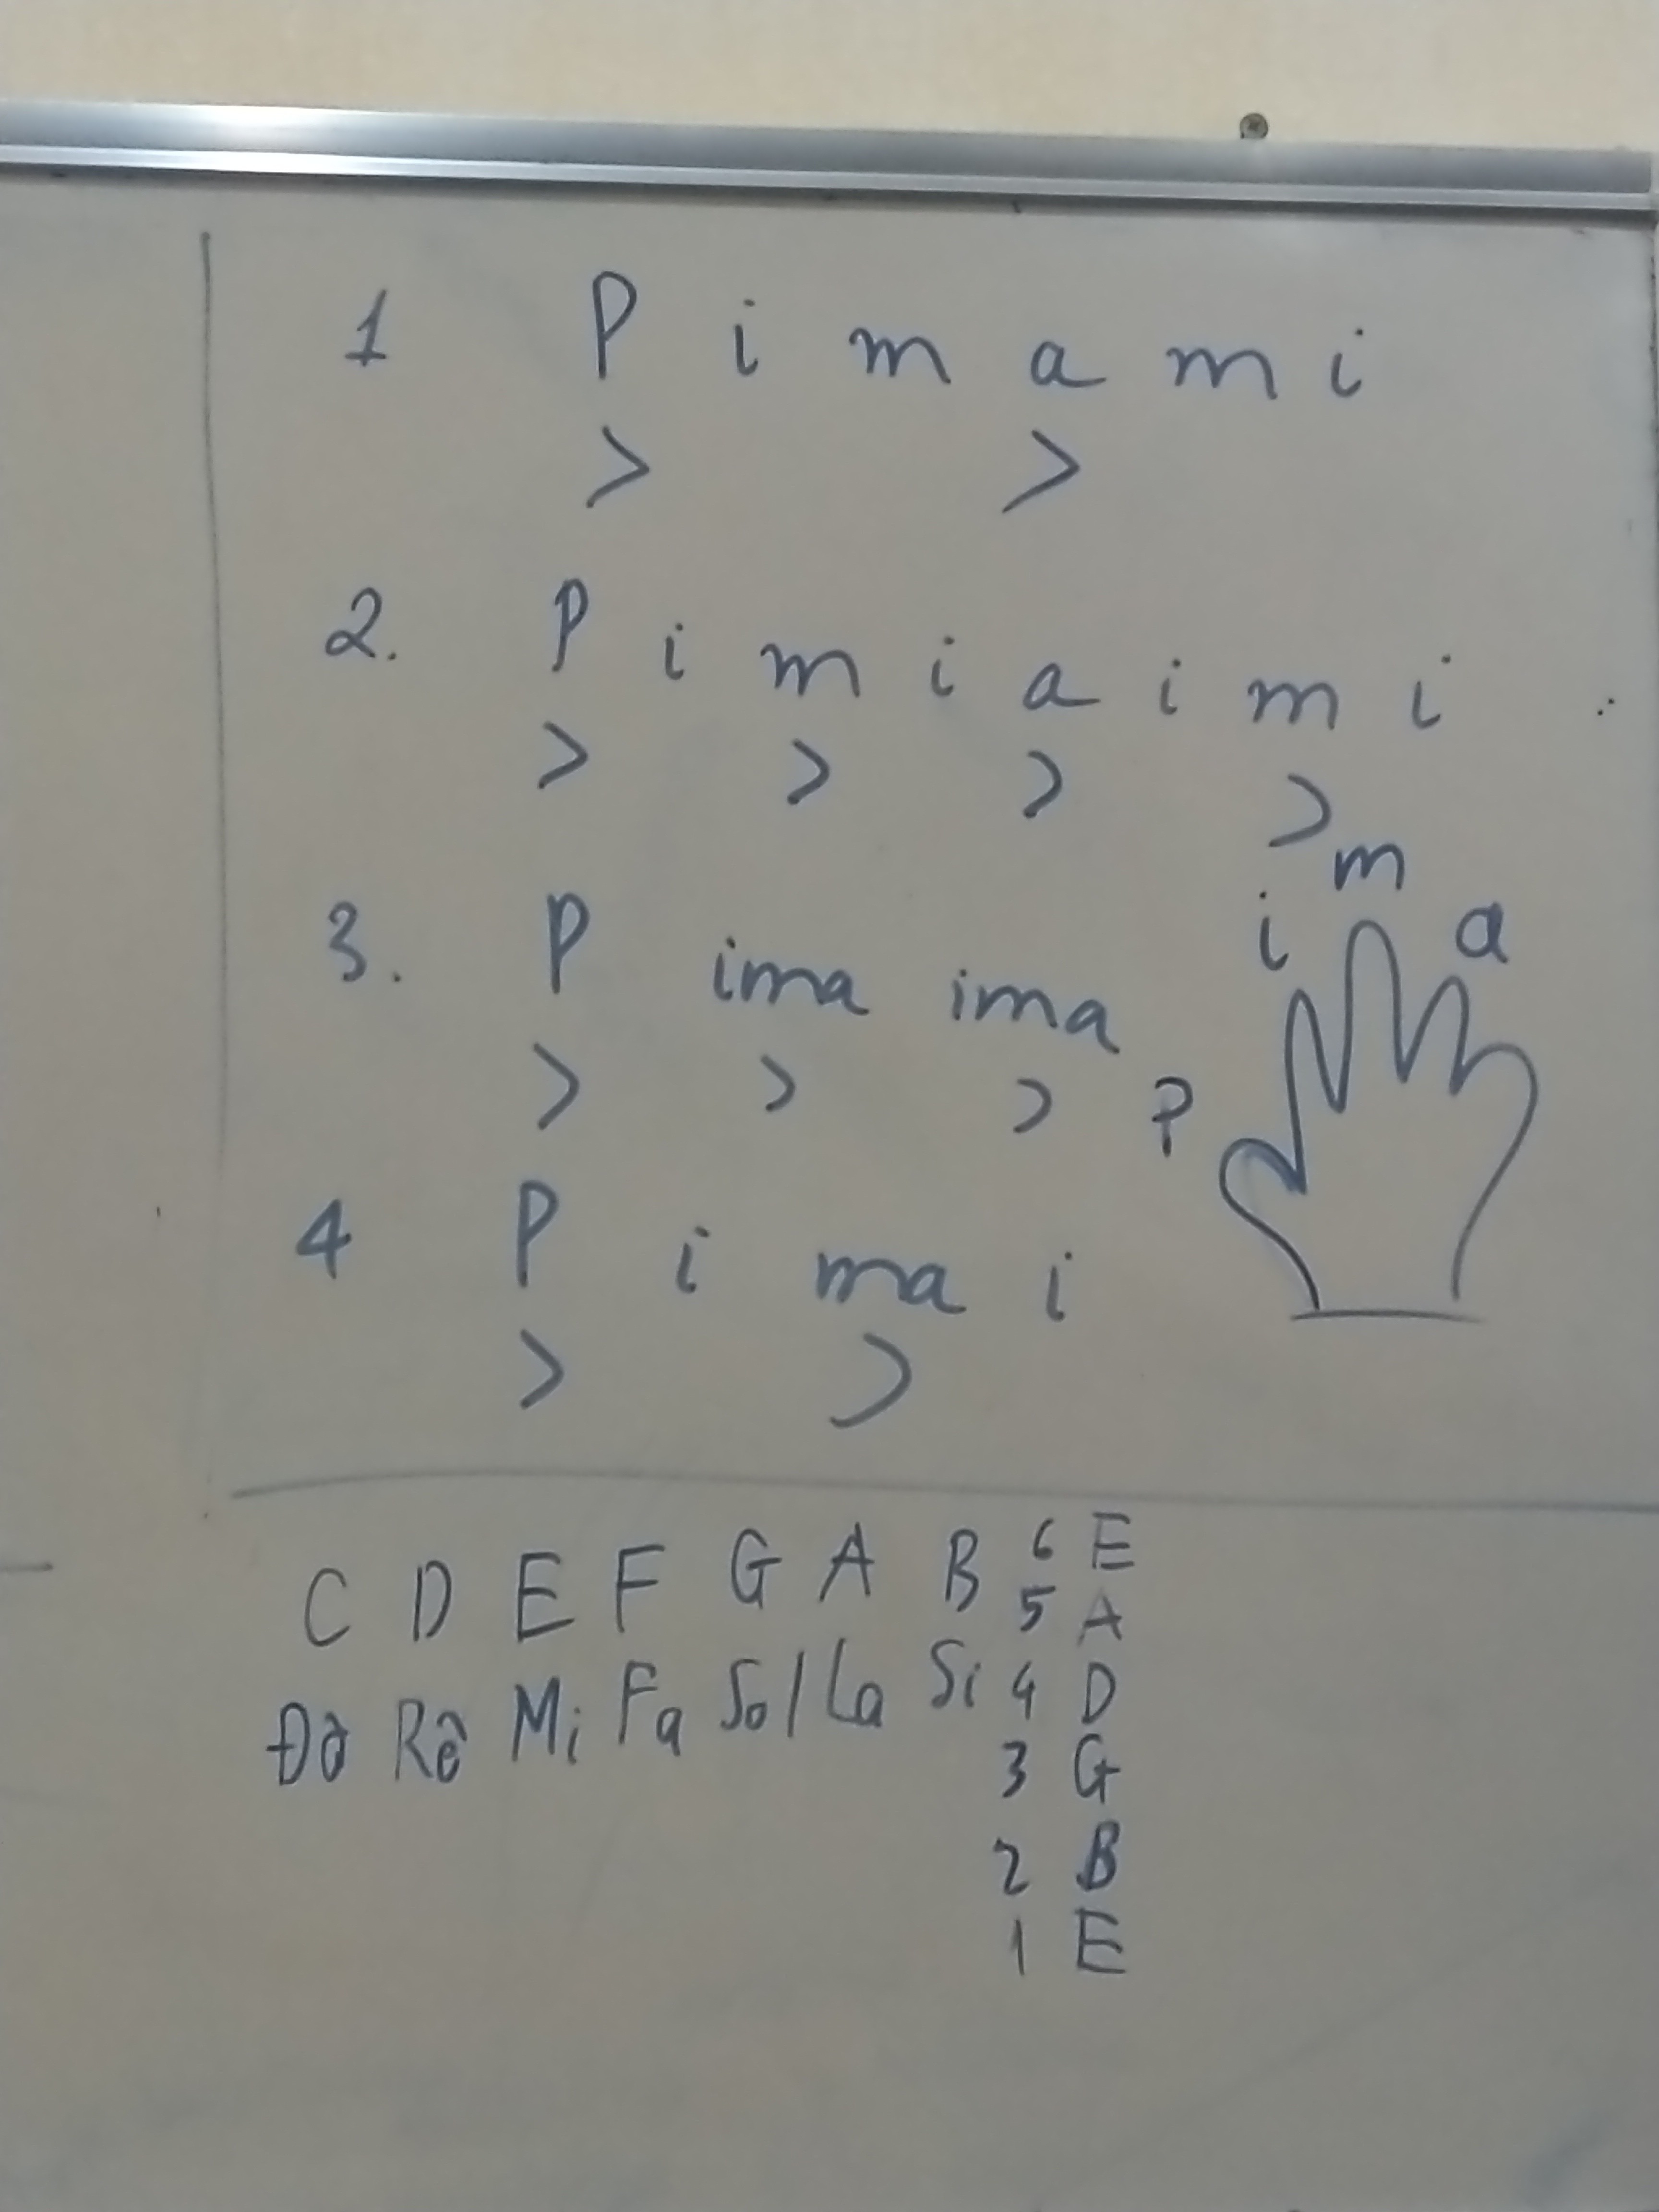 1 P i m a m i
> >
2. P i m i a i m i
> > > >
3. P ima ima
> > >
i m a
P
4 P i ma i
> >
C D E F G A B
Đồ Rê Mi Fa Sol La Si
6 E
5 A
4 D
3 G
2 B
1 E